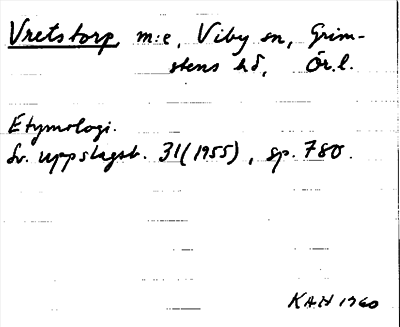 Vretstorp, m:e, Viby sn, Grim-
stens hd, Ör.l.
Etymologi.
Sv. uppslagsb. 31(1955), sp. 780.
KAH 1960